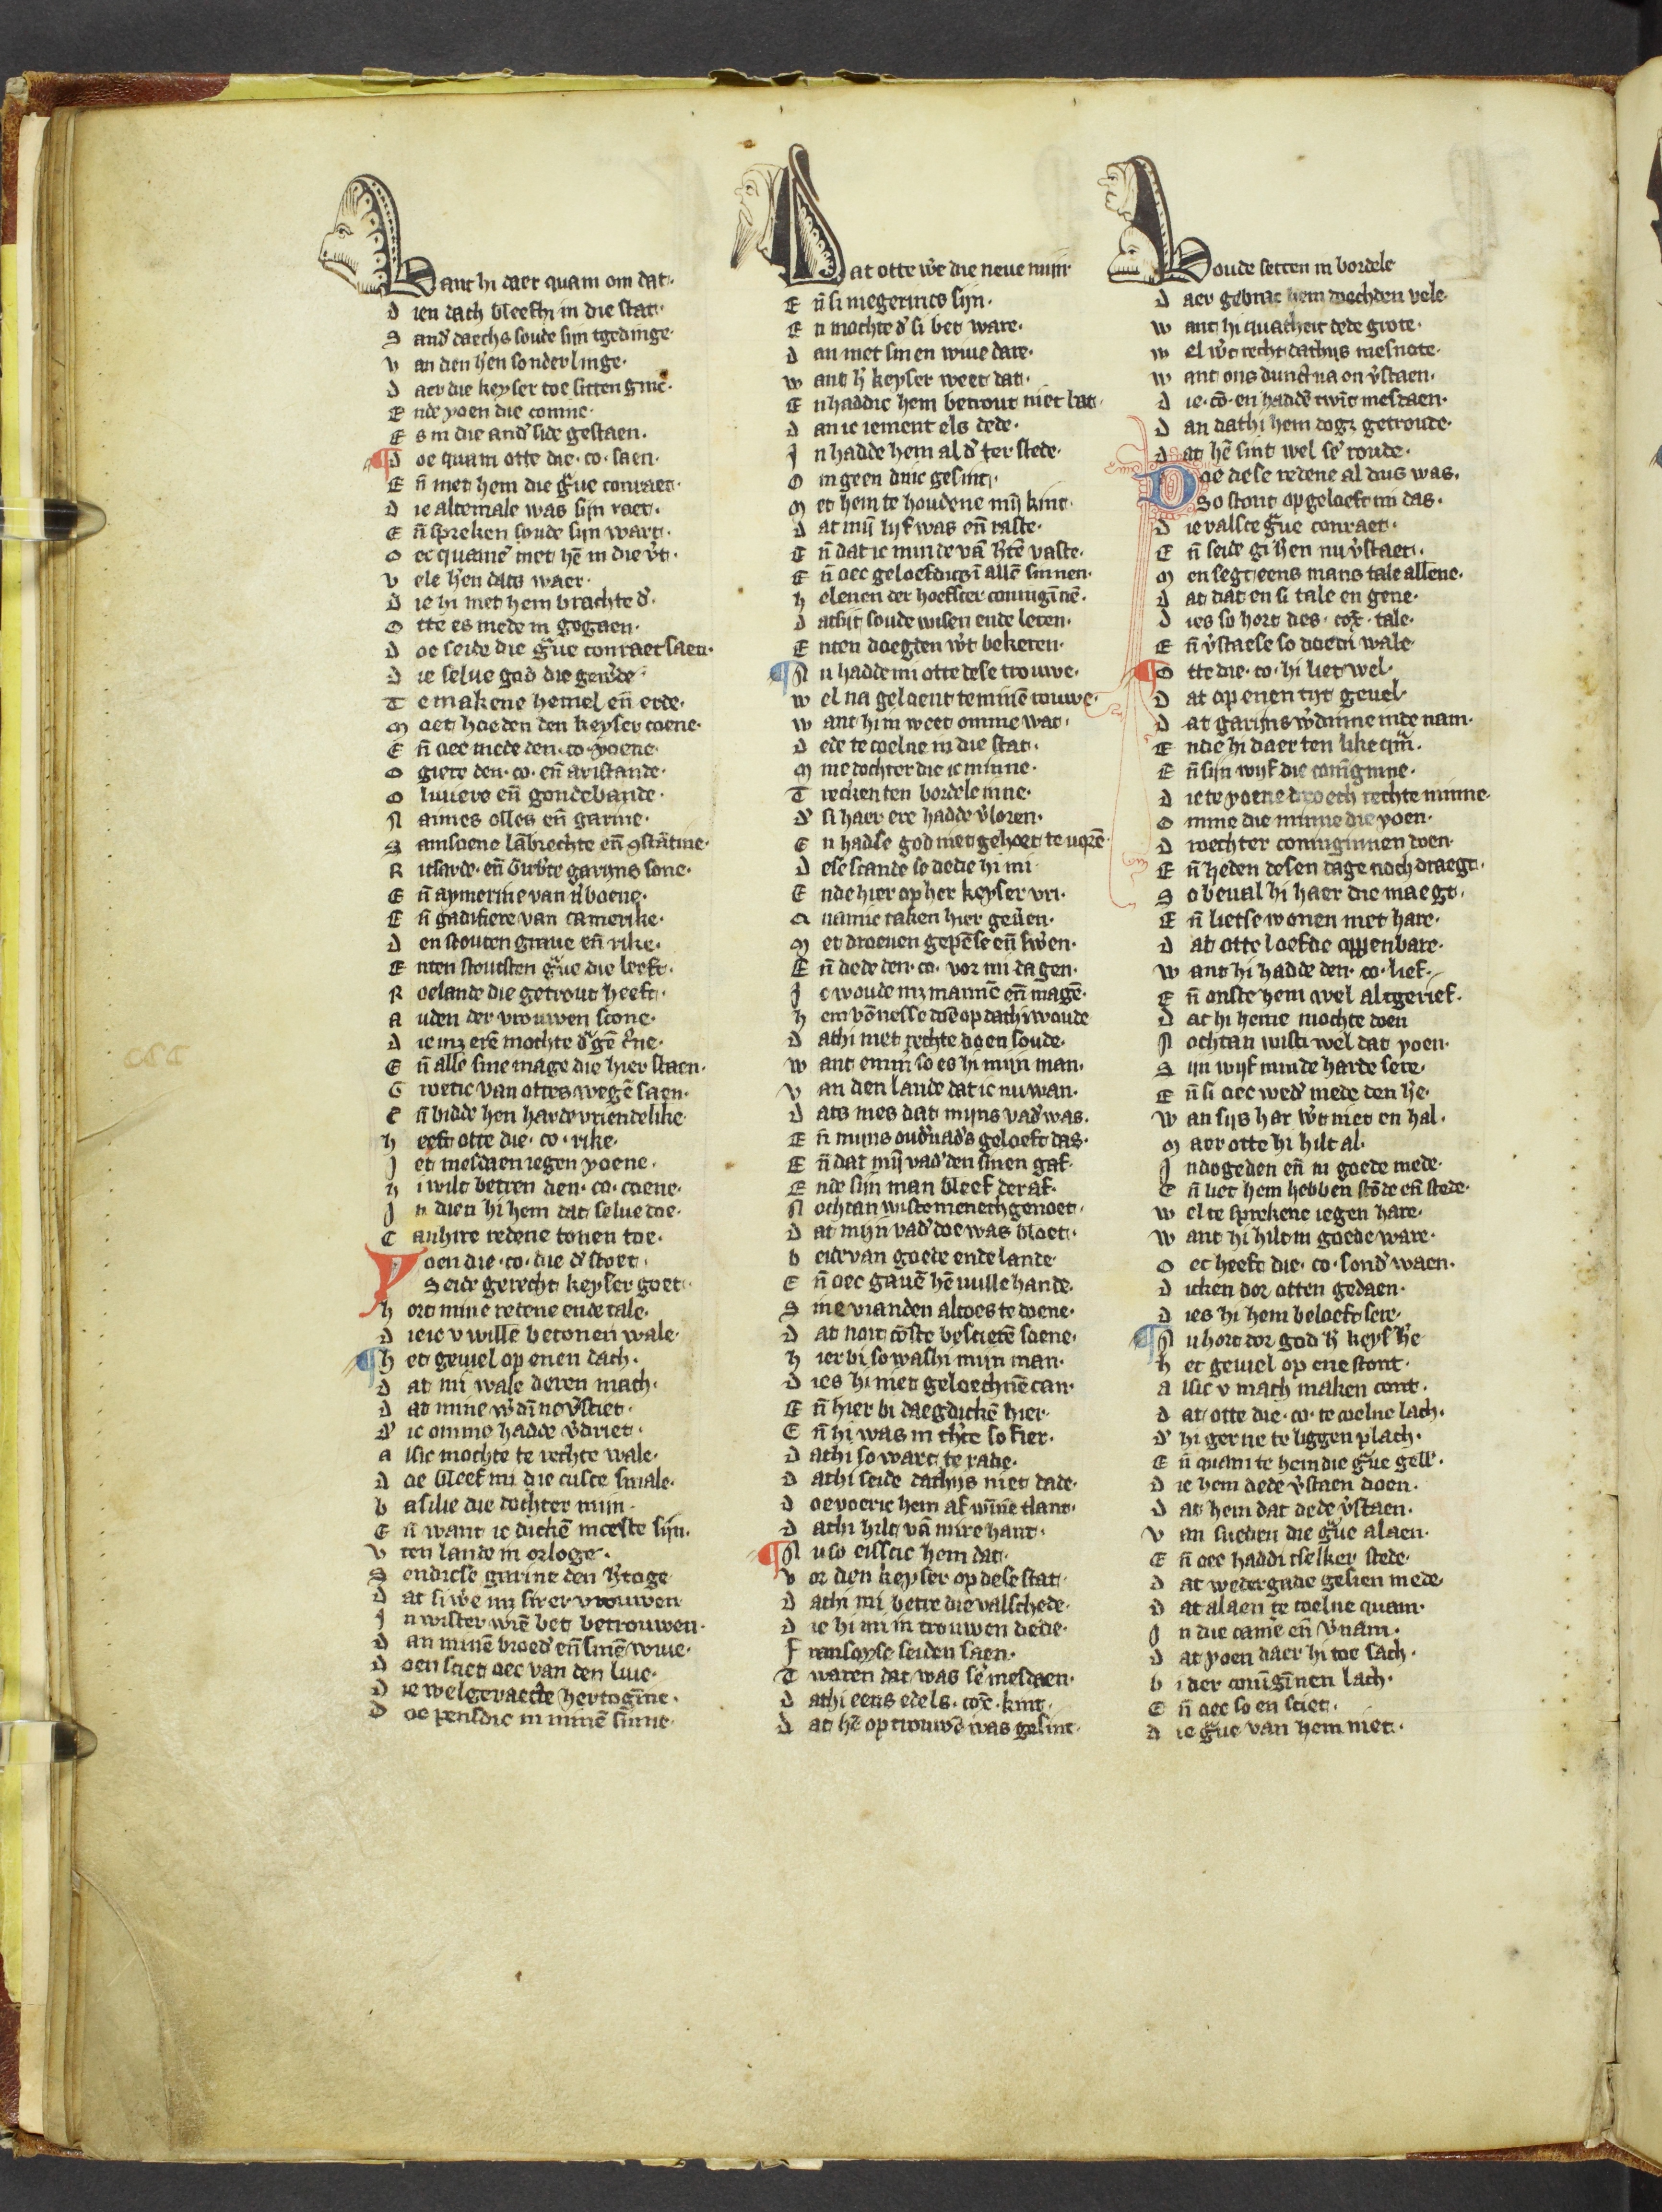 Want hi daer quam om dat.
D ien dach bleefhi in die stat.
S and' daechs soude sijn tgedinge.
V an den h'en sonderlinge.
D aer die keyser toe sitten ginc.
E nde yoen die coninc.
E s in die and' side gestaen.
D oe quam otte die .co. saen.
E n̄ met hem die g̃ue conraet.
D ie altemale was sijn raet.
E n̄ spreken soude sijn wart.
O ec quamē met hē in die v't.
V ele h'en dats waer.
D ie hi met hem brachte d'.
O tte es mede in gegaen.
D oe seide die g̃ue conraet saen.
D ie selue god die gew'de
T e makene hemel en̄ erde.
M oet hoeden den keyser coene.
E n̄ oec mede den .co. yoene.
O giere den .co. en̄ aristande.
O liuiers en̄ gondebande.
N aimes olles en̄ garine.
S amsoene lābrechte en̄ 9stātine.
R itsarde. en̄ Girb'te garijns sone.
E n̄ aymerine van n'boene.
E n̄ gadifiere van camerike.
D en stouten graue en̄ rike.
E nten stoutsten g̃ue die leeft.
R oelande die getrout heeft.
A uden der vrouwen scone.
D ie mz erē mochte d'gē c'ne.
E n̄ alle sine mage die hier staen.
G roetic van ottes wegē saen.
E n̄ bidde hen harde vriendelike
H eeft otte die .co. rike.
I et mesdaen iegen yoene.
H i wilt betren den .co. coene.
I n dien hi hem dat selue doe.
C anhire redene tonen toe.
Yoen die .co. die d' stoet.
Seide gerecht keyser goet.
H ort mine redene ende tale.
D ieic v wille betonen wale.
H et geuiel op enen dach.
D at mi wale deren mach.
D at mine w'dīne v'sciet.
D' ic omme hadde v'driet.
A lsic mochte te rechte wale.
D oe bleef mi die cusce smale.
B asilie die dochter mijn.
E n̄ want ic dickē meeste sijn.
V ten lande in orloge.
S endicse garine den h'toge
D at si w'e mz sirer vrouwen
I n wister wiē bet betrouwen.
D an minē broed' en̄ sinē wiue.
D oen sciet oec van den liue.
D ie welgeraecte hertogīne.
D oe pensdic in minē sinne.
Dat otte w'e die neue mijn
E n̄ si niegerinco sijn.
E n mochte d' si bet ware.
D an met sinen wiue dare.
W ant h' keyser weet dat.
E nhaddic hem betrout niet bat
D an ic iement els dede.
I n hadde hem al d' ter stede.
O m geen dinc gesint.
M et hem te houdene mij kint.
D at mij lijf was en̄ raste.
E n̄ dat ic minde vā h'tē vaste.
E n̄ oec geloefdics ī allē sinnen.
H elenen der hoefscer coningīnē.
D atsijt soude wisen ende leren.
E nten doegden w't bekeren.
N u hadde mi otte dese trouwe.
W el na geloent te minē rouwe.
W ant hi in weet omme wat.
D ede te coelne in die stat.
M ine dochter die ic minne.
T recken ten bordele inne.
D' si haer ere hadde v'loren.
E n hadse god niet gehoet te uorē
D ese scande so dede hi mi
E nde hier op her keyser vri.
Q uamic taken hier geuen.
M et droeuen gepēse en̄ sw'en.
E n̄ dede den .co. vor mi dagen.
I c woude mz mannē en̄ magē.
H em vōnesse doē op dathi woude
D athi met rechte doen soude.
W ant emm' so es hi mijn man.
V an den lande dat ic nu wan.
D ats mes dat mijns vad' was.
E n̄ mijns oud'uad's geloeft das.
E n̄ dat mij vad' den sinen gaf.
E nde sijn man bleef der af.
N ochtan wistemenech genoet.
D at mijn vad' doe was bloet.
B eide van goede ende lande
E n̄ oec gauē hē uulle hande.
S ine vianden altoes te doene.
D at noit cōste bescierē soene.
H ier bi so washi mijn man.
D ies hi niet geloechnē can.
E n̄ hier bi daegdickē hier.
E n̄ hi was in th'te so fier.
D athi so wart te rade.
D athi seide dathijs niet dade.
D oe voeric hem af w̄īne tlant.
D athi hilt vā mire hant.
N u so eisschic hem dat.
V or den keyser op dese stat.
D athi mi betre die valschede.
D ie hi mi in trouwen dede.
F ransoyse seiden saen.
T waren dat was sē' mesdaen.
D athi eens edels .cōc. kint.
D at hē op trouwē was gesint.
Woude setten in bordele
D aer gebrac hem doechden vele.
W ant hi quatheit dede grote.
W el w't recht dathijs mesnote.
W ant ons dunct na on v'staen.
D ie .cō. en hadde twīt mesdaen.
D an dathi hem dogz getroude.
D at hē sint wel se' roude.
Doe dese redene al dus was.
So stont op geloeft mi das.
D ie valsce g̃ue conraet.
E n̄ seide gi h'en nu v'staet.
M en segt eens mans tale allene.
D at dat en si tale en gene.
D ies so hort des .cox. tale.
E n̄ v'staetse so doedi wale
O tte die .co. hi liet wel
D at op enen tijt geuel
D at garijns w'dinne inde nam.
E nde hi daer ten like qm̄.
E n̄ sijn wijf die coninginne.
D ie te yoene droech rechte minne.
O mme die minne die yoen.
D roech ter coninginnen doen.
E n̄ heden desen dage noch draegt.
S o beual hi haer die maegt.
E n̄ lietse wonen met hare.
D at otte loefde oppenbare.
W ant hi hadde den .co. lief.
E n̄ onste hem wel altgerief.
D at hi heme mochte doen
N ochtan wisti wel dat yoen.
S ijn wijf minde harde sere.
E n̄ si oec wed' mede den h'e.
W an sijs har w't niet en hal.
M aer otte hi hilt al.
I n dogeden en̄ in goede mede.
E n̄ liet hem hebben stōde en̄ stede.
W el te sprekene iegen hare.
W ant hi hilt in goede ware.
O ec heeft die .co. sond' waen.
D icken dor otten gedaen.
D ies hi hem beloeft sere.
N u hort dor god h' keys' h'e
H et geuiel op ene stont.
A lsic v mach maken cont.
D at otte die .co. te coelne lach.
D' hi gerne te liggen plach.
E n̄ quam te hem die g̃ue gell'.
D ie hem dede v'staen doen.
D at hem dat dede v'staen.
V an sueden die g̃ue alaen.
E n̄ oec haddi tselker stede.
D at wedergade gesien mede
D at alaen te coelne quam.
I n die camē en̄ v'nam.
D at yoen daer hi toe sach.
B i der conīgīnen lach.
E n̄ oec so en sciet.
D ie g̃ue van hem niet.